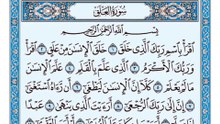 سُورَةُ العَلَقِ
بِسْمِ اللَّهِ الرَّحْمَٰنِ الرَّحِيمِ
ٱقْرَأْ بِٱسْمِ رَبِّكَ ٱلَّذِى خَلَقَ ١ خَلَقَ ٱلْإِنسَٰنَ مِنْ عَلَقٍ ٢ ٱقْرَأْ
وَرَبُّكَ ٱلْأَكْرَمُ ٣ ٱلَّذِى عَلَّمَ بِٱلْقَلَمِ ٤ عَلَّمَ ٱلْإِنسَٰنَ مَا لَمْ
يَعْلَمْ ٥ كَلَّآ إِنَّ ٱلْإِنسَٰنَ لَيَطْغَىٰٓ ٦ أَن رَّءَاهُ ٱسْتَغْنَىٰٓ
٧ إِنَّ إِلَىٰ رَبِّكَ ٱلرُّجْعَىٰٓ ٨ أَرَءَيْتَ ٱلَّذِى يَنْهَىٰ ٩ عَبْدًا